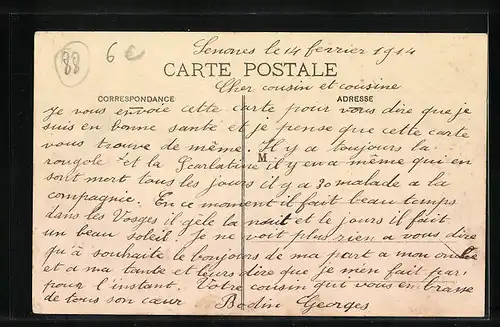 88
6 €
Senones le 14 février 1914
CARTE POSTALE
Cher cousin et cousine
CORRESPONDANCE
ADRESSE
Je vous envoie cette carte pour vous dire que je
suis en bonne santé et je pense que cette carte
vous trouve de même. Il y a toujours la
rougole et la Scarlatine il y en a même qui en
M
sont mort tous les jours il y a 30 malade a la
compagnie. En ce moment il fait beau temps
dans les Vosges il gèle la nuit et le jours il fait
un beau soleil. Je ne voit plus rien a vous dire
qu'à souhaité le bonjours de ma part a mon oncle
et a ma tante et leurs dire que je m'en fait pas
pour l'instant. Votre cousin qui vous embrasse
de tous son cœur Bodin Georges